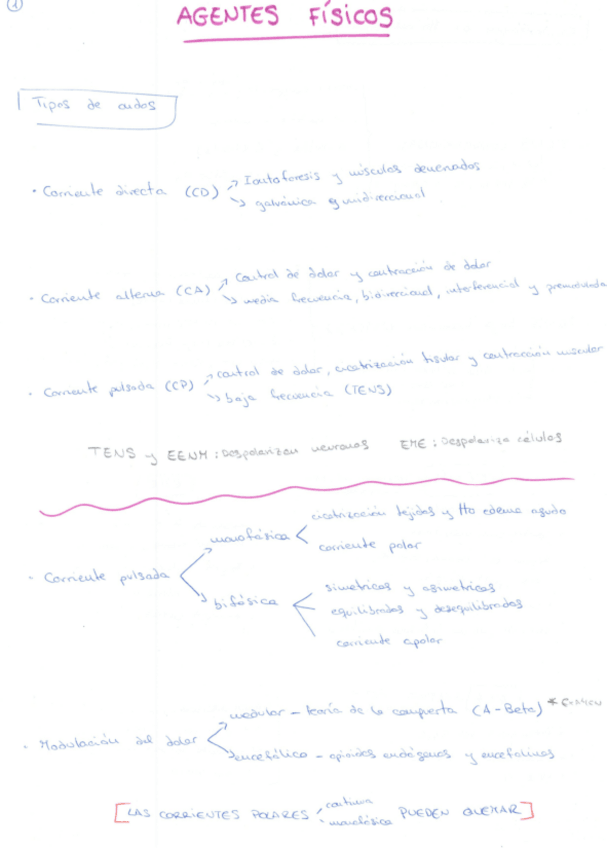 1
AGENTES FÍSICOS
Tipos de ondas
· Corriente directa (CD) → Iontoforesis y músculos denervados
→ galvánica o unidireccional
· Corriente alterna (CA) → Control de dolor y contracción de dolor
→ media frecuencia, bidireccional, interferencial y premodulada
· Corriente pulsada (CP) → control de dolor, cicatrización tisular y contracción muscular
→ baja frecuencia (TENS)
TENS y EENM: Despolarizan neuronas EME: Despolariza células
- Corriente pulsada
monofásica
cicatrización tejidos y tto edema agudo
corriente polar
bifásica
simetricas y asimetricas
equilibradas y desequilibradas
corriente apolar
- Modulación del dolor
medular - teoría de la compuerta (A-Beta) *
encefálico - opioides endógenos y encefalinas
[LAS CORRIENTES POLARES continua
monofásica PUEDEN QUEMAR]